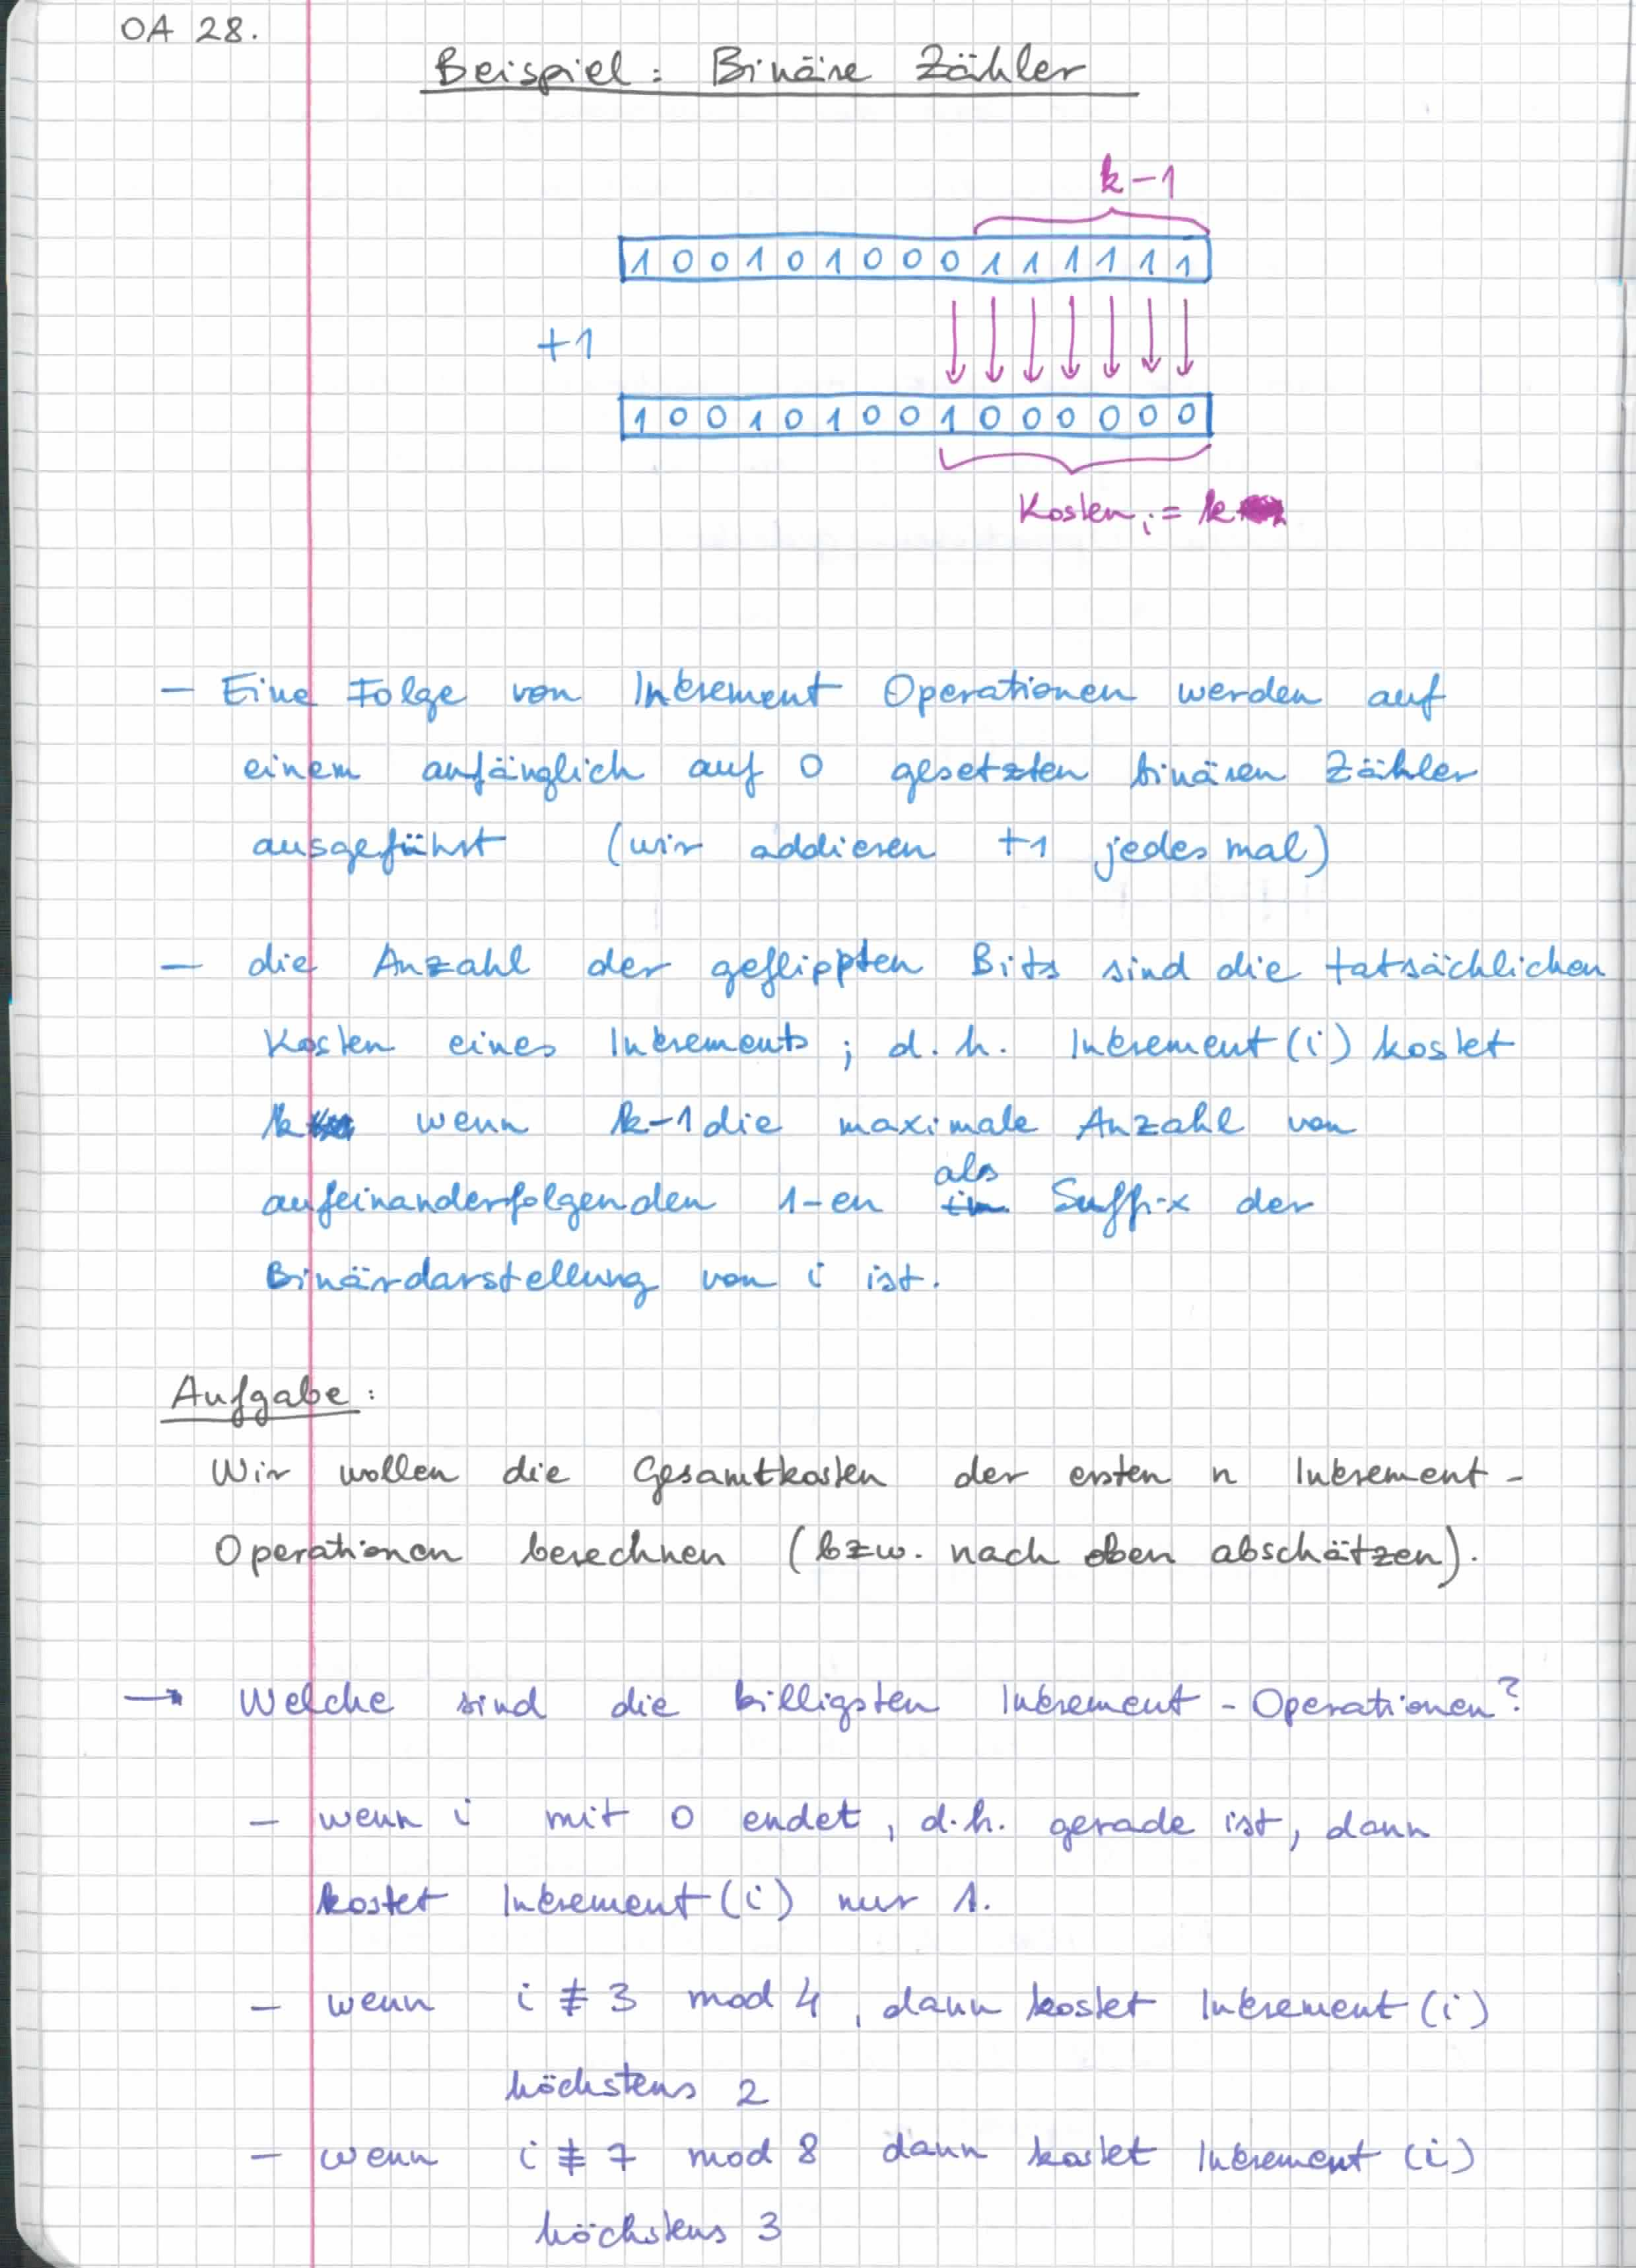 OA 28.
Beispiel: Binäre Zähler
k-1
1 0 0 1 0 1 0 0 0 1 1 1 1 1 1
+1
1 0 0 1 0 1 0 0 1 0 0 0 0 0 0
Kosten i = k
- Eine Folge von Inkrement Operationen werden auf
einem anfänglich auf 0 gesetzten binären Zähler
ausgeführt (wir addieren +1 jedes mal)
- die Anzahl der geflippten Bits sind die tatsächlichen
Kosten eines Inkrements; d.h. Inkrement(i) kostet
k wenn k-1 die maximale Anzahl von
als
aufeinanderfolgenden 1-en im Suffix der
Binärdarstellung von i ist.
Aufgabe:
Wir wollen die Gesamtkosten der ersten n Inkrement-
Operationen berechnen (bzw. nach oben abschätzen).
→ Welche sind die billigsten Inkrement-Operationen?
- wenn i mit 0 endet, d.h. gerade ist, dann
kostet Inkrement(i) nur 1.
- wenn i ≢ 3 mod 4, dann kostet Inkrement(i)
höchstens 2
- wenn i ≢ 7 mod 8 dann kostet Inkrement(i)
höchstens 3